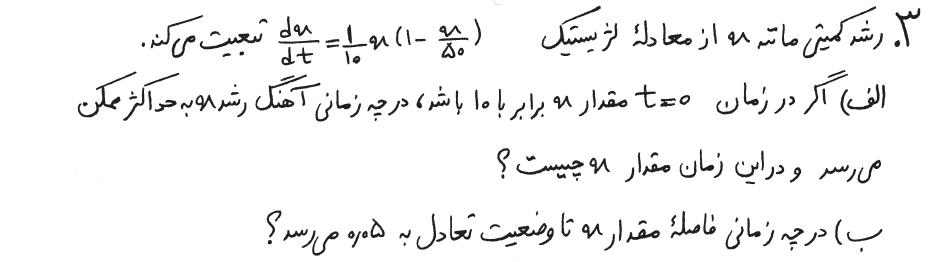 ۳. رشد کمیتی مانند x از معادلهٔ لژیستیک dx/dt = 1/10 x (1 - x/۵۰) تبعیت می‌کند.
الف) اگر در زمان t=0 مقدار x برابر با ۱۰ باشد، در چه زمانی آهنگ رشد x به حداکثر ممکن
می‌رسد و در این زمان مقدار x چیست؟
ب) در چه زمانی فاصلهٔ مقدار x تا وضعیت تعادل به ۰٫۰۵ می‌رسد؟